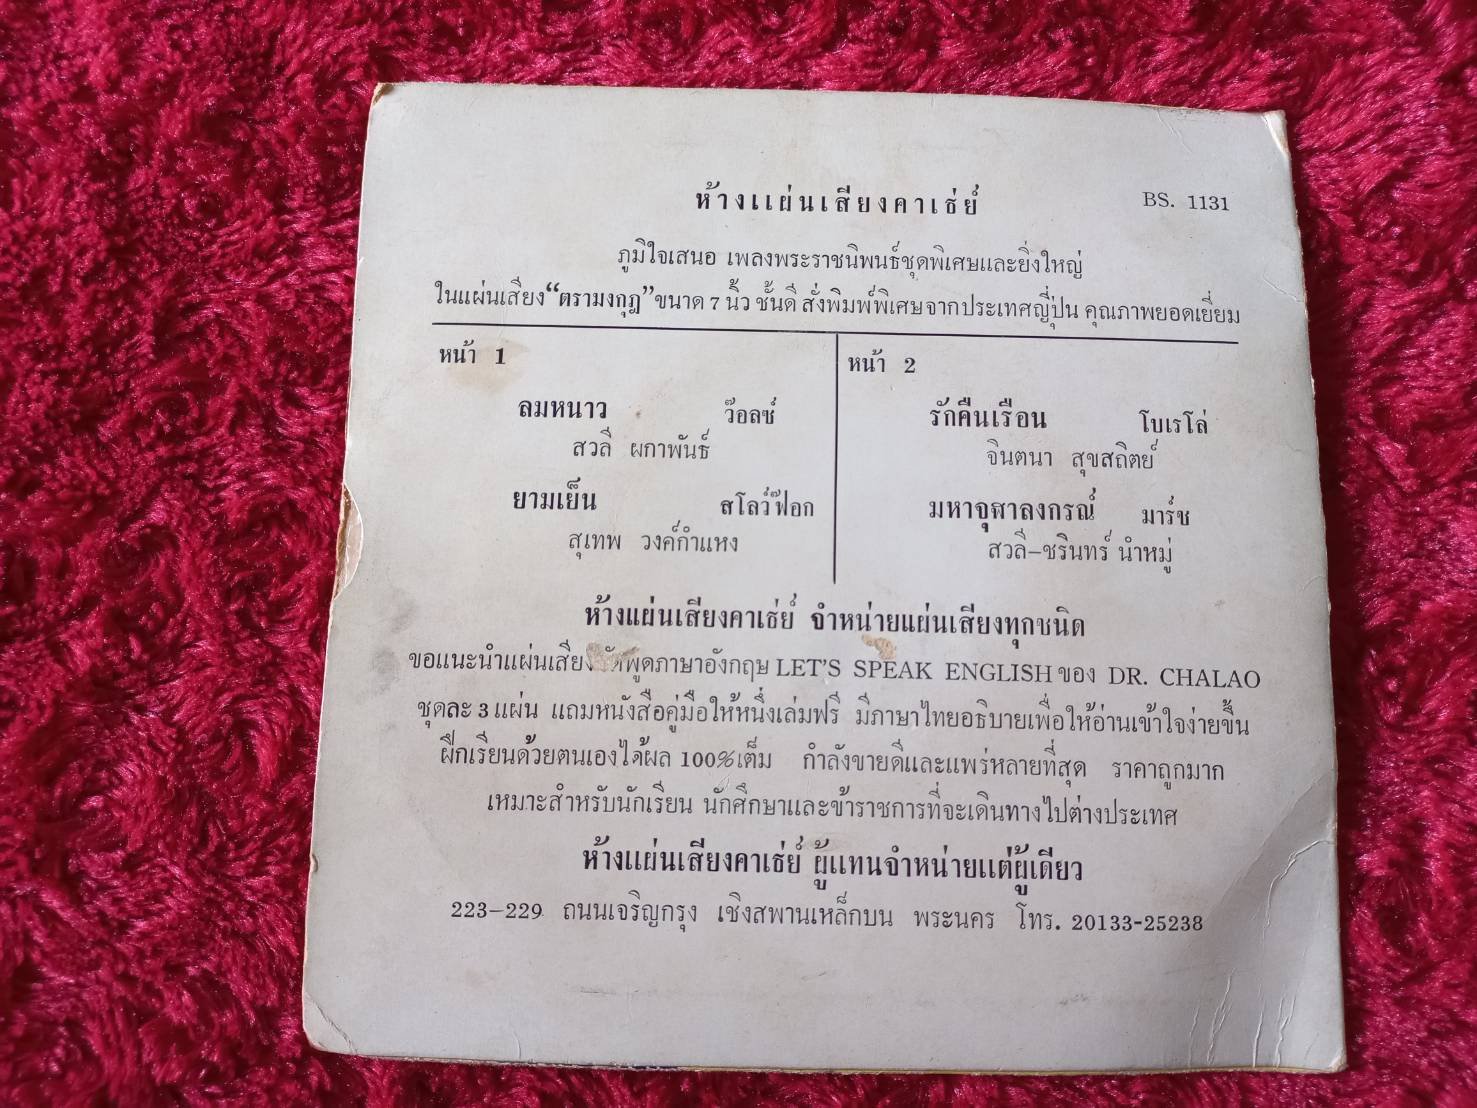 ห้างแผ่นเสียงคาเธ่ย์ BS. 1131
ภูมิใจเสนอ เพลงพระราชนิพนธ์ชุดพิเศษและยิ่งใหญ่
ในแผ่นเสียง“ตรามงกุฎ”ขนาด 7 นิ้ว ชั้นดี สั่งพิมพ์พิเศษจากประเทศญี่ปุ่น คุณภาพยอดเยี่ยม
หน้า 1
ลมหนาว ว๊อลซ์
สวลี ผกาพันธ์
ยามเย็น สโลว์ฟ๊อก
สุเทพ วงค์กำแหง
หน้า 2
รักคืนเรือน โบเรโล่
จินตนา สุขสถิตย์
มหาจุฬาลงกรณ์ มาร์ช
สวลี–ชรินทร์ นำหมู่
ห้างแผ่นเสียงคาเธ่ย์ จำหน่ายแผ่นเสียงทุกชนิด
ขอแนะนำแผ่นเสียง พูดภาษาอังกฤษ LET'S SPEAK ENGLISH ของ DR. CHALAO
ชุดละ 3 แผ่น แถมหนังสือคู่มือให้หนึ่งเล่มฟรี มีภาษาไทยอธิบายเพื่อให้อ่านเข้าใจง่ายขึ้น
ฝึกเรียนด้วยตนเองได้ผล 100% เต็ม กำลังขายดีและแพร่หลายที่สุด ราคาถูกมาก
เหมาะสำหรับนักเรียน นักศึกษาและข้าราชการที่จะเดินทางไปต่างประเทศ
ห้างแผ่นเสียงคาเธ่ย์ ผู้แทนจำหน่ายแต่ผู้เดียว
223–229 ถนนเจริญกรุง เชิงสพานเหล็กบน พระนคร โทร. 20133-25238